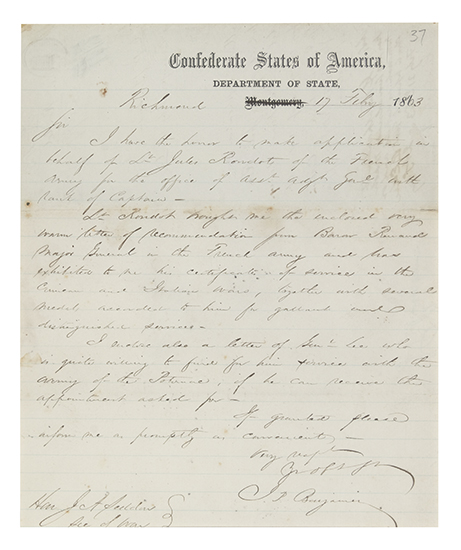 37
Confederate States of America,
DEPARTMENT OF STATE,
Richmond Montgomery, 17 Feby 1863
Sir
I have the honor to make application in
behalf of Lt. Jules Rondot of the French
army for the office of Asst Adjt Genl with
rank of Captain —
Lt. Rondot brought me the enclosed very
warm letter of recommendation from Baron
Major General in the French army and has
exhibited to me his certificates of service in the
Crimean and Italian Wars, together with several
medals awarded to him for gallant and
distinguished services —
I enclose also a letter of Genl Lee who
is quite willing to find for him service with the
army of the Potomac, if he can receive the
appointment asked for —
If granted please
inform me as promptly as convenient —
Very respy
Yr Obt St
J. P. Benjamin
Hon J. A. Seddon
Sec of War